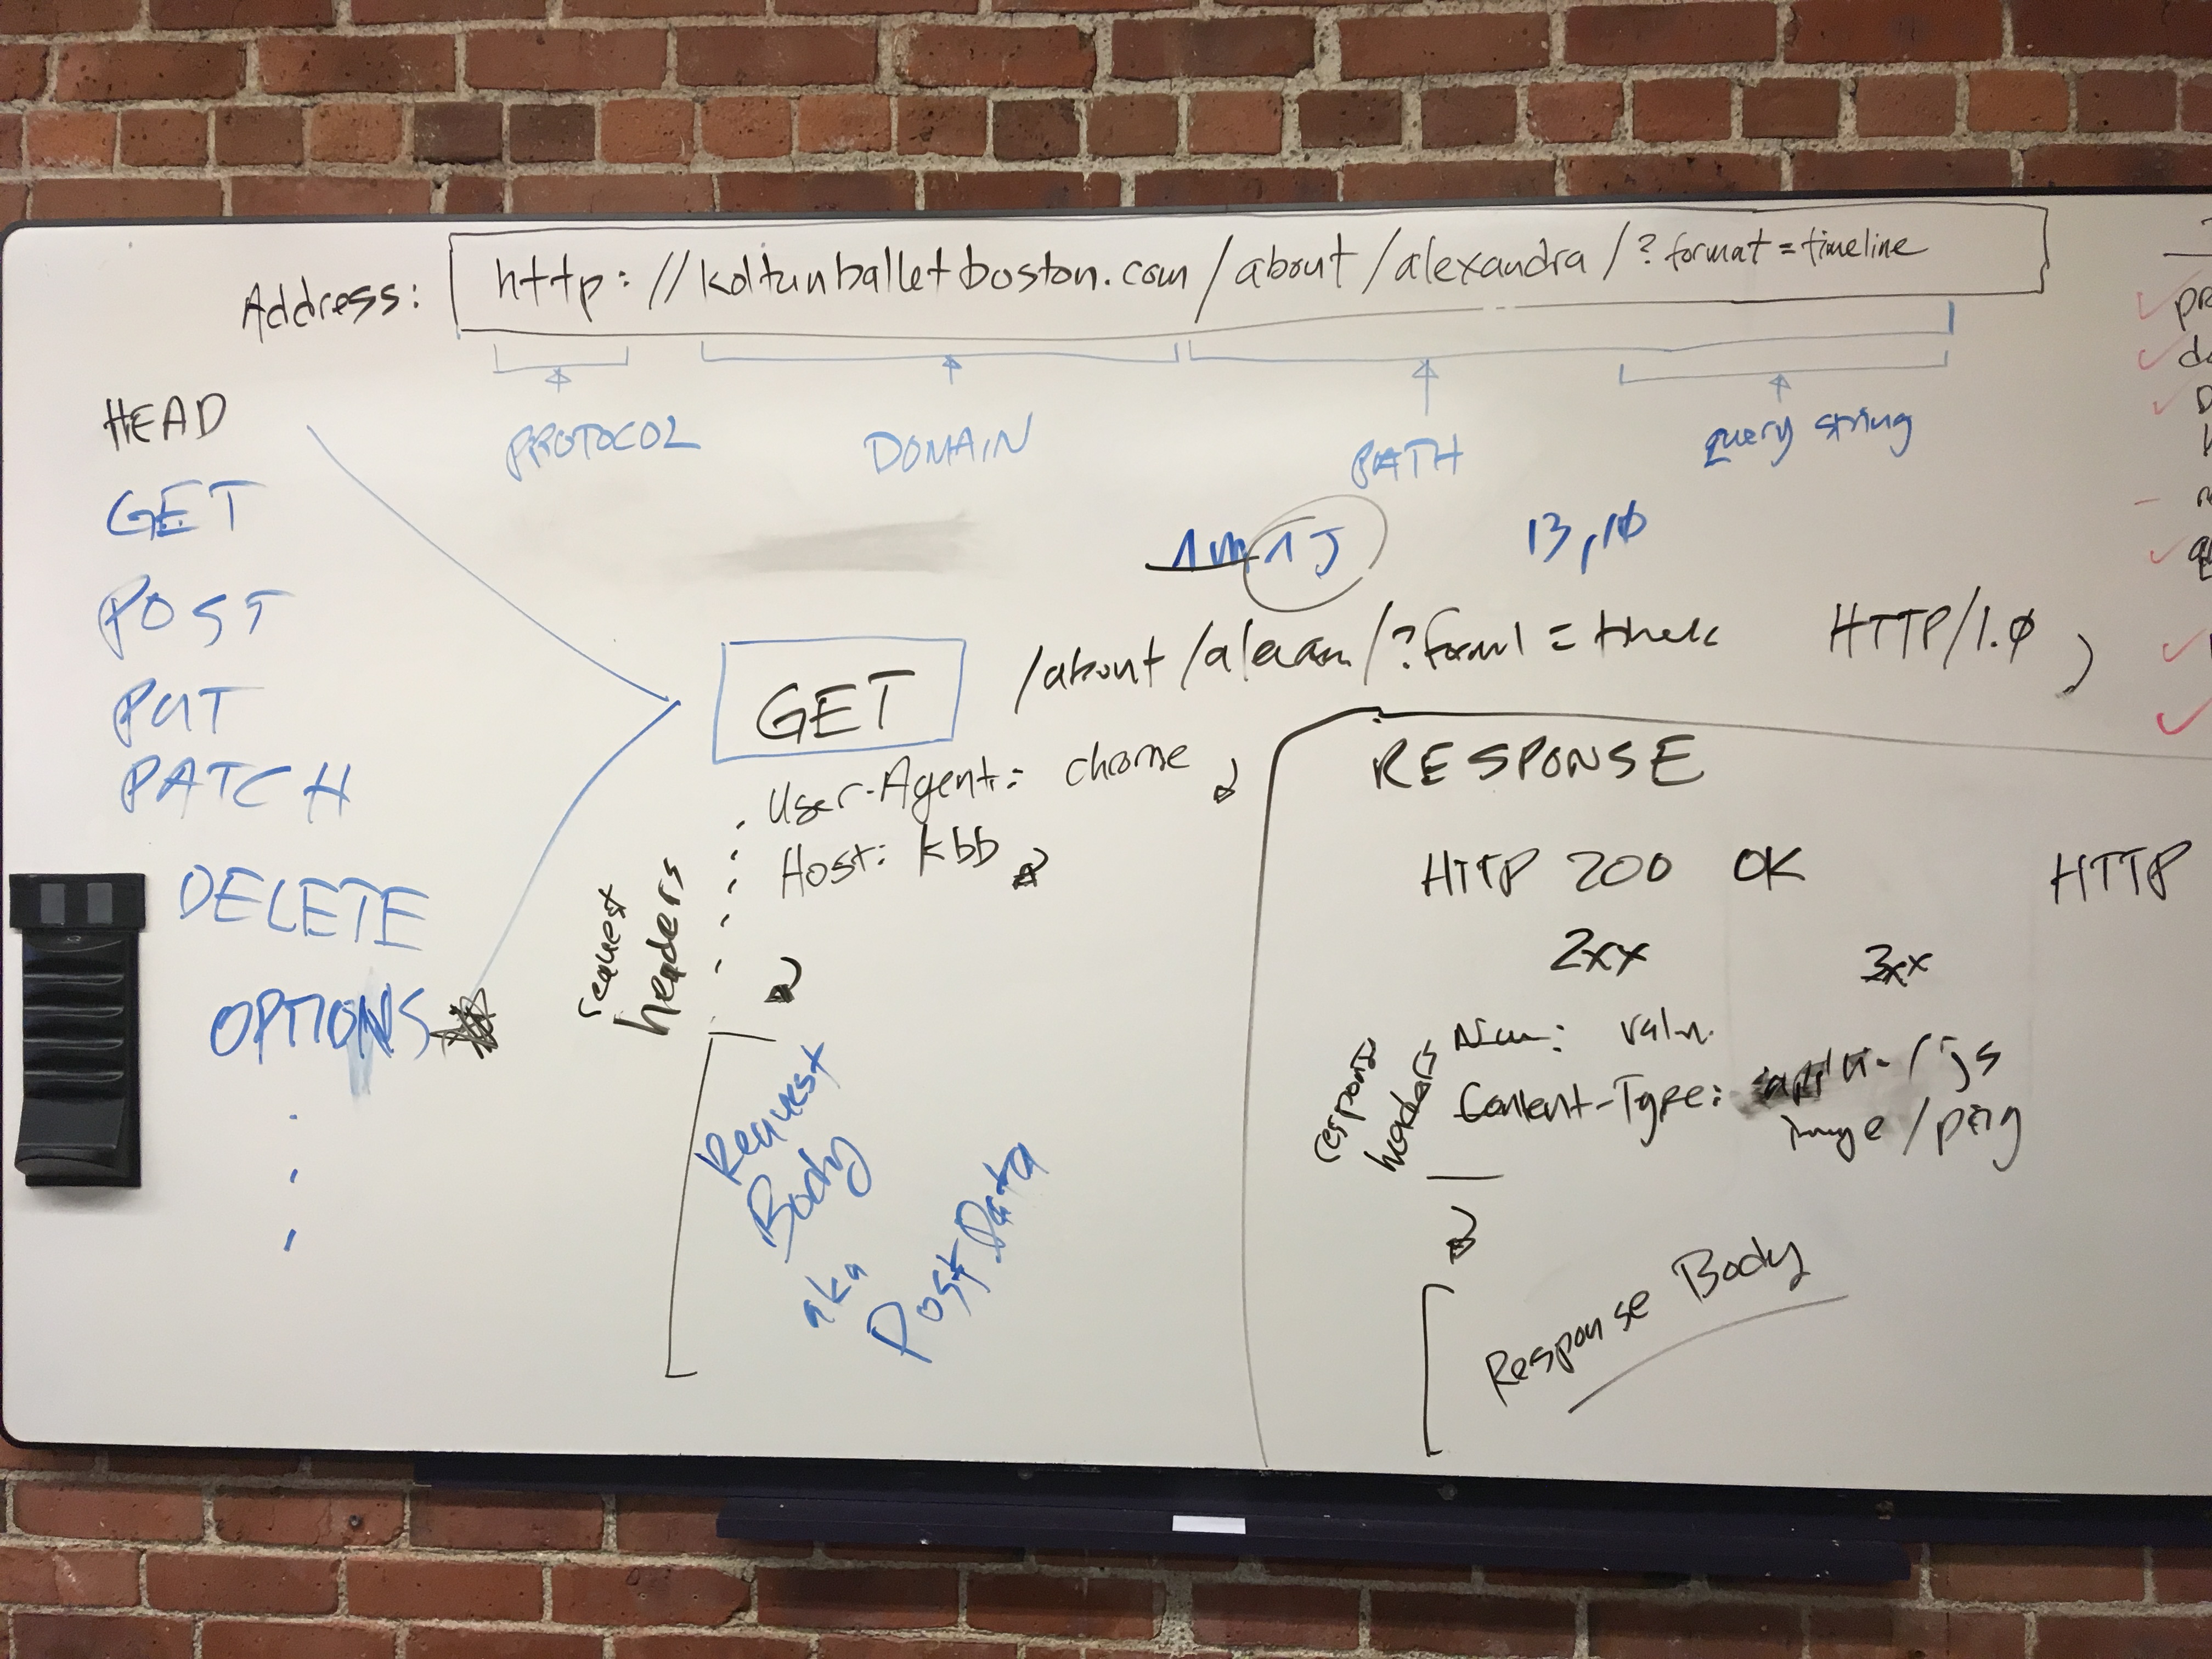 Address: http://koltunballetboston.com/about/alexandra/?format=timeline
PROTOCOL
DOMAIN
PATH
query string
HEAD
GET
POST
PUT
PATCH
DELETE
OPTIONS
13,10
GET /about/alexan/? HTTP/1.0
User-Agent: chrome
Host: kbb
request
headers
Request
Body
aka
Post Data
RESPONSE
HTTP 200 OK HTTP
2xx 3xx
response
headers
Content-Type: /js
image/png
Response Body